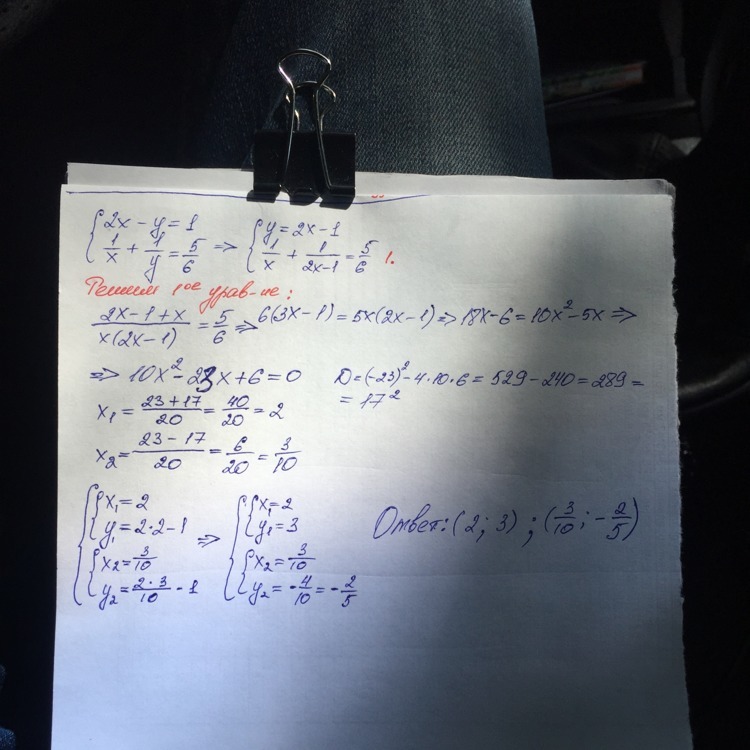 {2x - y = 1
{1/x + 1/y = 5/6 => {y = 2x - 1
{1/x + 1/(2x-1) = 5/6 1.
Решим 1ое урав-ие:
(2x - 1 + x)/(x(2x-1)) = 5/6 => 6(3x-1) = 5x(2x-1) => 18x - 6 = 10x² - 5x =>
=> 10x² - 23x + 6 = 0 D = (-23)² - 4·10·6 = 529 - 240 = 289 =
= 17²
x₁ = (23+17)/20 = 40/20 = 2
x₂ = (23-17)/20 = 6/20 = 3/10
{x₁ = 2
{y₁ = 2·2 - 1
{x₂ = 3/10
{y₂ = (2·3)/10 - 1
=> {x₁ = 2
{y₁ = 3
{x₂ = 3/10
{y₂ = -4/10 = -2/5
Ответ: (2; 3) ; (3/10; -2/5)